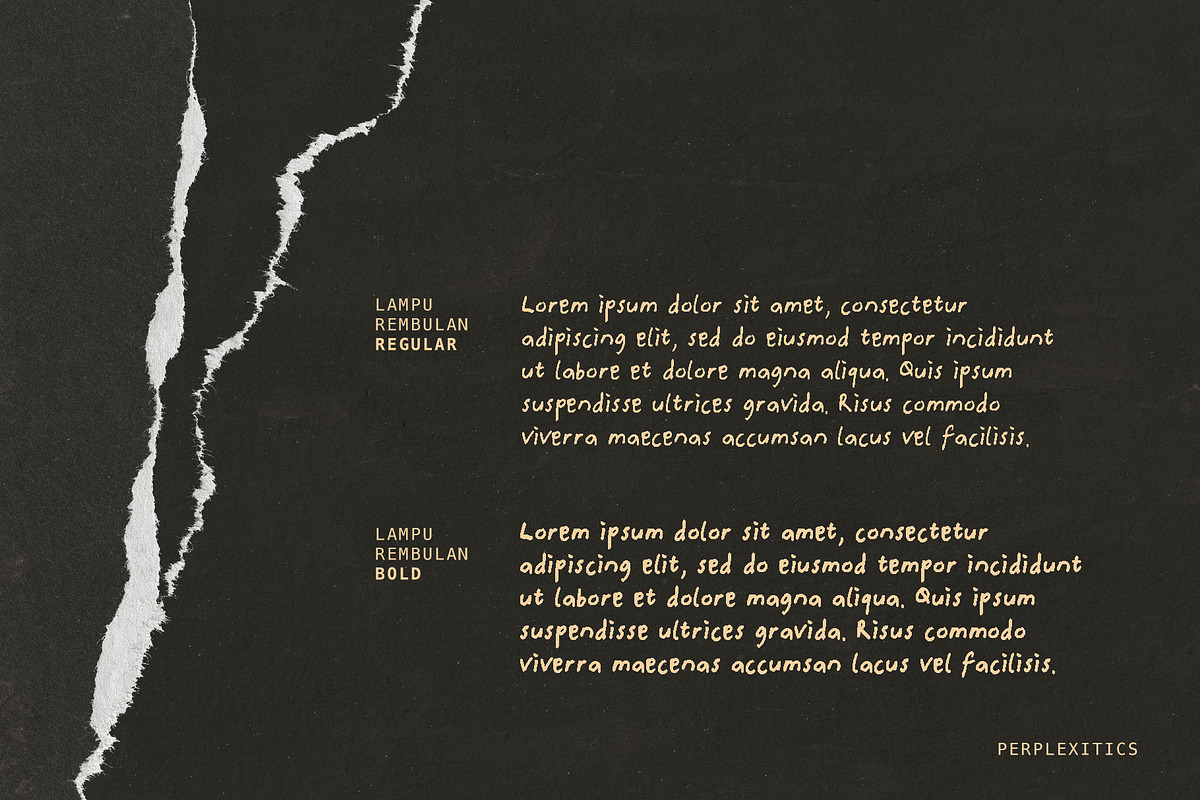 LAMPU
REMBULAN
REGULAR
Lorem ipsum dolor sit amet, consectetur
adipiscing elit, sed do eiusmod tempor incididunt
ut labore et dolore magna aliqua. Quis ipsum
suspendisse ultrices gravida. Risus commodo
viverra maecenas accumsan lacus vel facilisis.
LAMPU
REMBULAN
BOLD
Lorem ipsum dolor sit amet, consectetur
adipiscing elit, sed do eiusmod tempor incididunt
ut labore et dolore magna aliqua. Quis ipsum
suspendisse ultrices gravida. Risus commodo
viverra maecenas accumsan lacus vel facilisis.
PERPLEXITICS